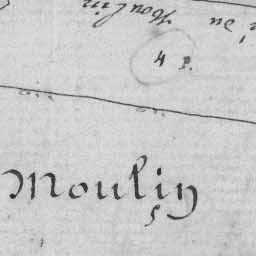 du Moulin
4 e.
Moulin